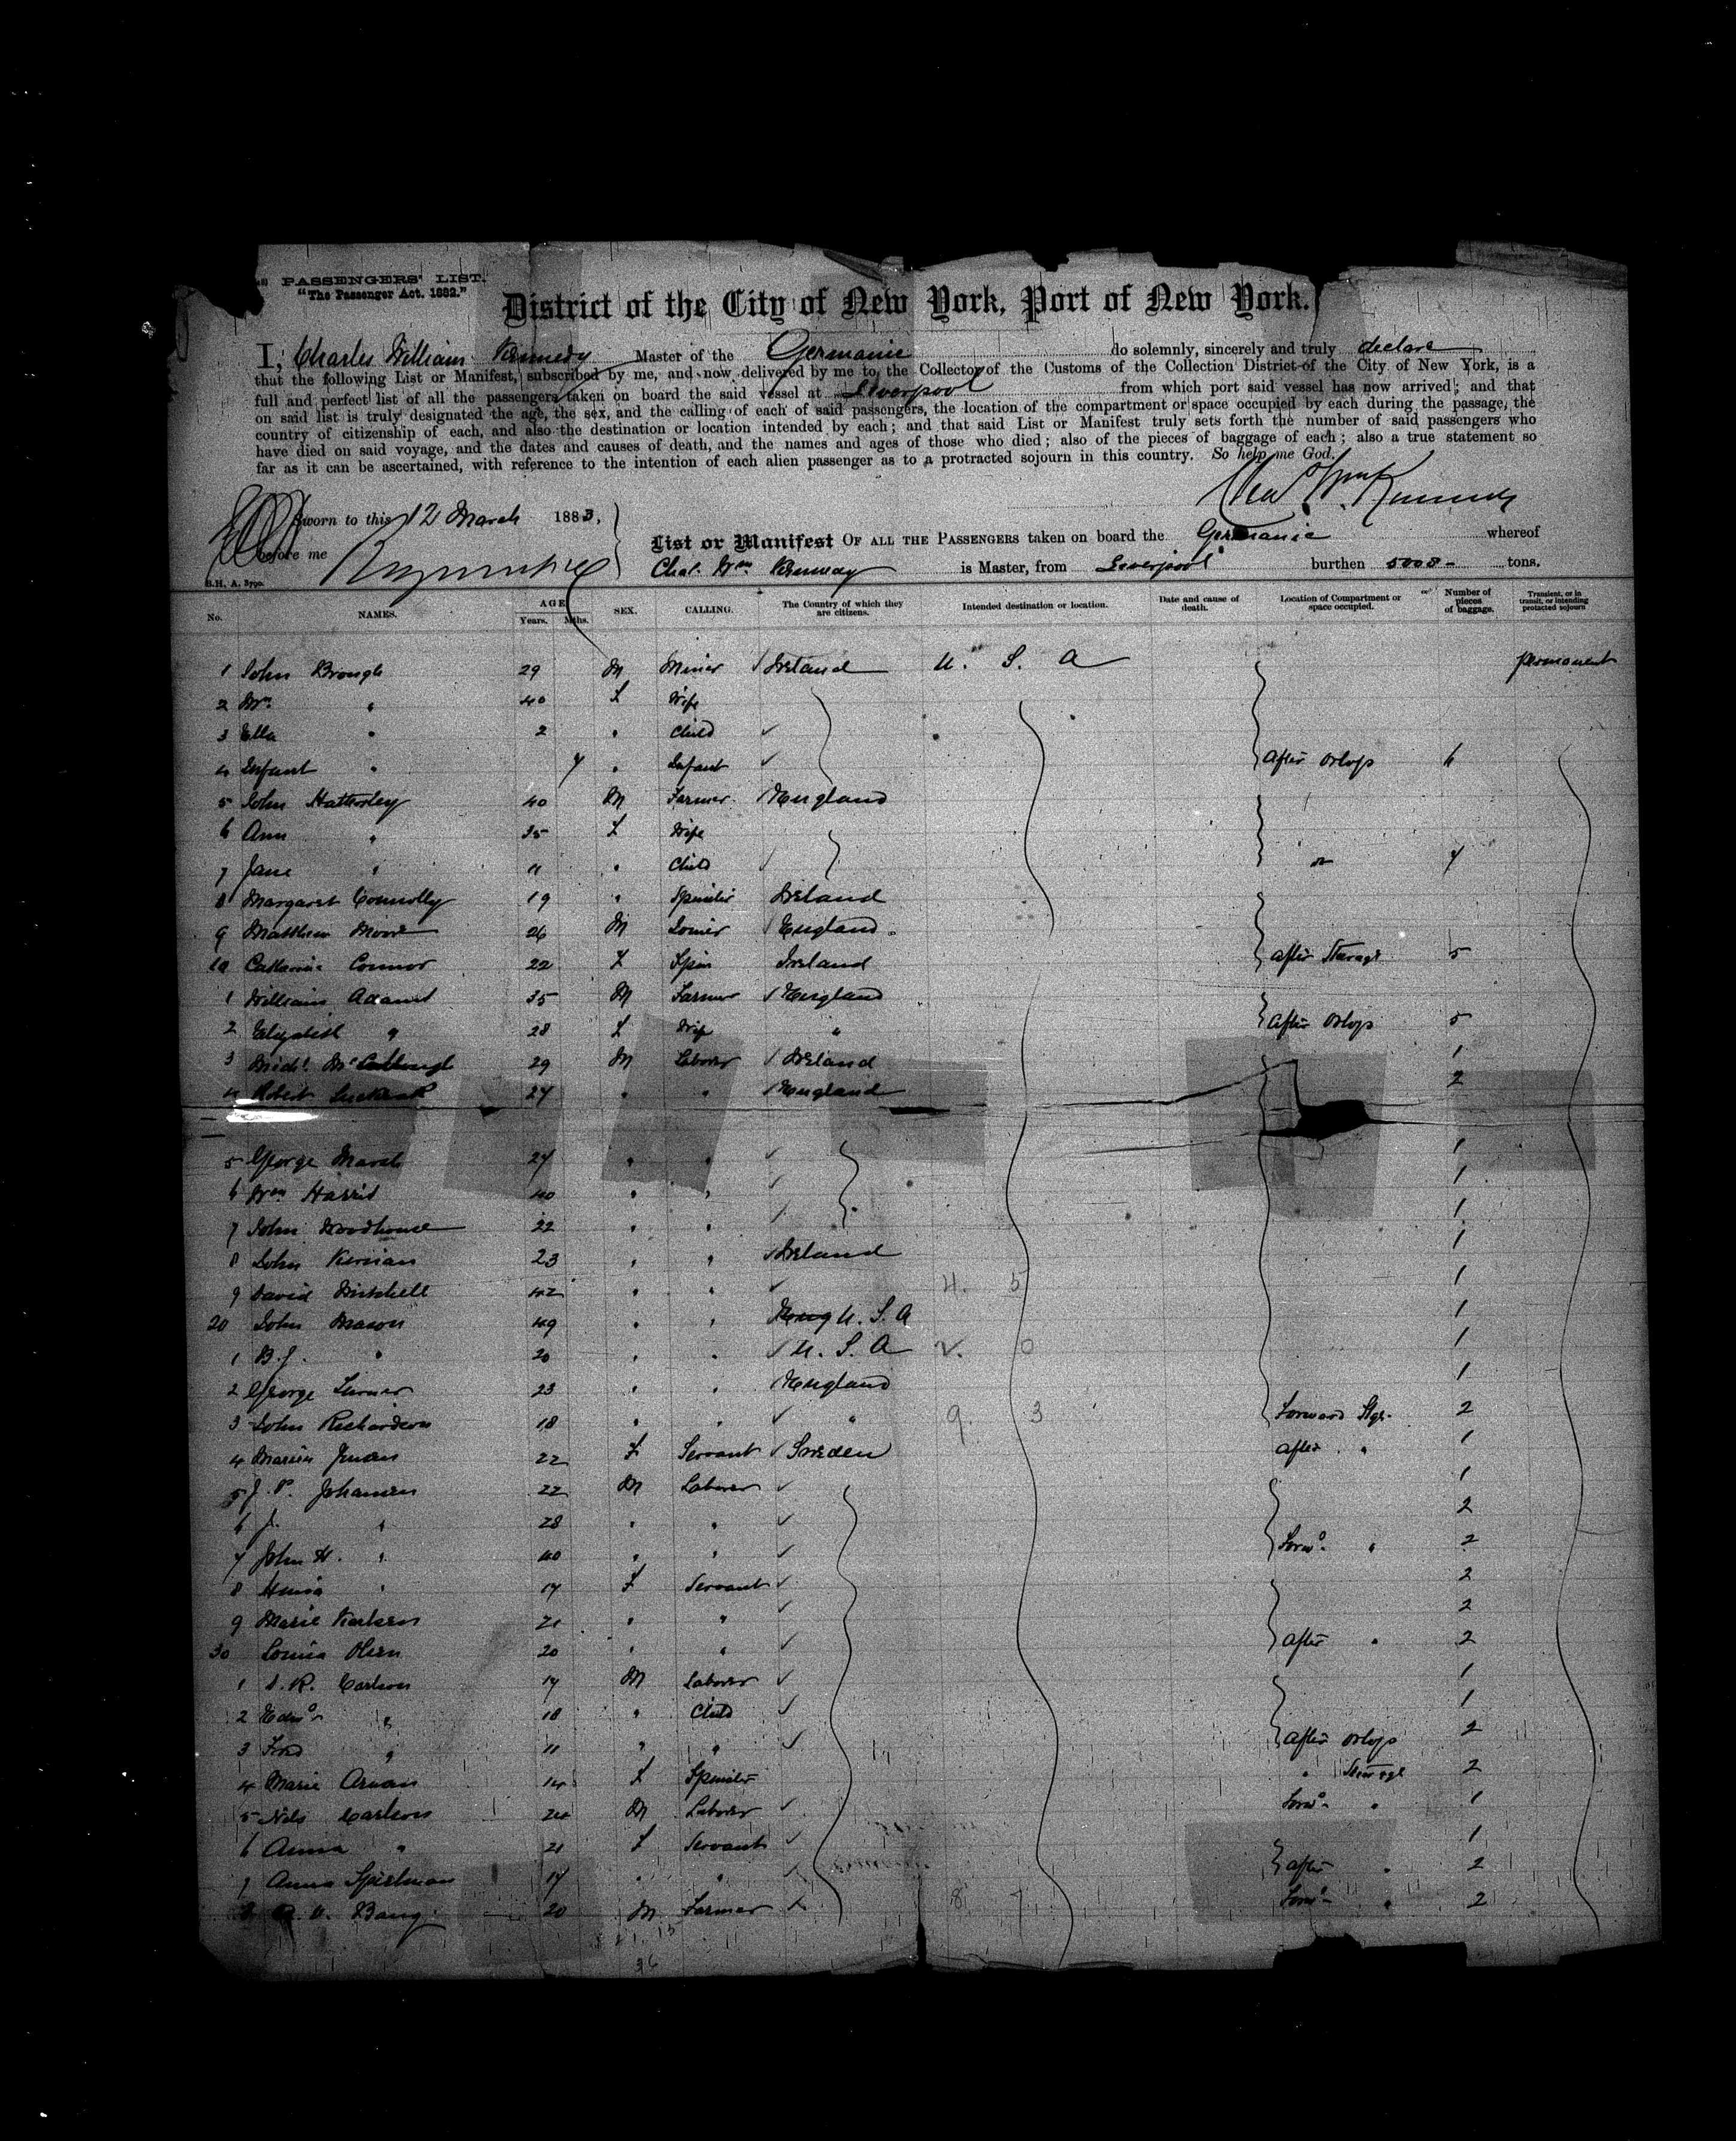 PASSENGERS' LIST.
"The Passenger Act. 1882."
District of the City of New York, Port of New York.
I, Charles William Kennedy Master of the Germanic do solemnly, sincerely and truly declare
that the following List or Manifest, subscribed by me, and now delivered by me to the Collector of the Customs of the Collection District of the City of New York, is a
full and perfect list of all the passengers taken on board the said vessel at Liverpool from which port said vessel has now arrived; and that
on said list is truly designated the age, the sex, and the calling of each of said passengers, the location of the compartment or space occupied by each during the passage, the
country of citizenship of each, and also the destination or location intended by each; and that said List or Manifest truly sets forth the number of said passengers who
have died on said voyage, and the dates and causes of death, and the names and ages of those who died; also of the pieces of baggage of each; also a true statement so
far as it can be ascertained, with reference to the intention of each alien passenger as to a protracted sojourn in this country. So help me God.
Chas Wm Kennedy
Sworn to this 12 March 1883,
before me
List or Manifest OF ALL THE PASSENGERS taken on board the Germanic whereof
Chas. Wm Kennedy is Master, from Liverpool burthen 5008 - tons.
B.H. A. 3790.
No. NAMES. AGE Years. Mths. SEX. CALLING. The Country of which they are citizens. Intended destination or location. Date and cause of death. Location of Compartment or space occupied. Number of pieces of baggage. Transient, or in transit, or intending protacted sojourn
1 John Brough 29 M Miner Ireland U. S. A permanent
2 Mrs " 40 F Wife
3 Ella " 2 " Child
4 Infant " 7 " Infant After Orlop 6
5 John Hatherley 40 M Farmer England
6 Ann " 35 F Wife
7 Jane " 11 " Child do 7
8 Margaret Connolly 19 " Spinster Ireland
9 Matthew Moore 26 M Joiner England
10 Catharine Connor 22 F Spin Ireland After Steerage 5
1 William Adams 35 M Farmer England
2 Elizabeth " 28 F Wife " After Orlop 5
3 Michl. McCullough 29 M Laborer Ireland 1
4 Robert 27 " " England 2
5 George Marsh 27 " " 1
6 Wm Harris 40 " " 1
7 John Woodhouse 22 " " 1
8 John Kernan 23 " " Ireland 1
9 David Mitchell 42 " " 1
20 John Mason 49 " " U. S. A 1
1 B.J. " 20 " " U. S. A 1
2 George Turner 23 " " England 1
3 John Richardson 18 " " " Forward Stge. 2
4 22 F Servant Sweden After " 1
5 J. P. Johansen 22 M Laborer 1
6 J. " 28 " " 2
7 John H. " 40 " " Forwd. " 2
8 " 17 F Servant 2
9 Marie Karlsen 21 " " 2
30 Louisa Olsen 20 " " After " 2
1 Carlson 17 M Laborer 1
2 Edwd " 10 " Child 1
3 Fred " 11 " " After Orlop 2
4 Marie 14 F Spinster " Steerage 2
5 Nils Carlson 24 M Laborer Forwd " 1
6 Anna " 21 F Servant 1
7 Anna 17 " " After " 2
8 Bang 20 M Farmer Forwd " 2